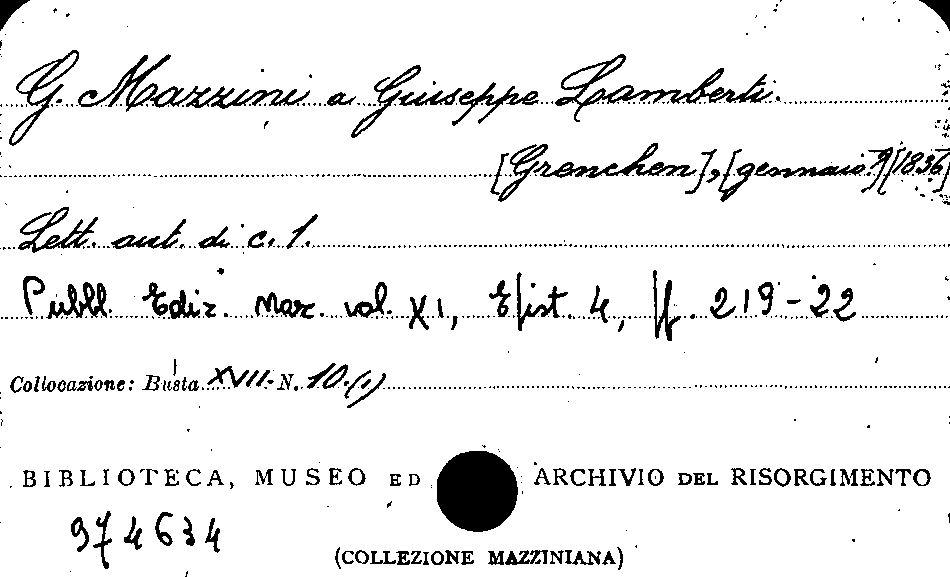 G. Mazzini a Giuseppe Lamberti.
[Grenchen], [gennaio?] [1836]
Lett. aut. di c. 1.
Pubbl. Ediz. Naz. vol. XI, Epist. 4, pp. 219-22
Collocazione: Busta XVII- N. 10.(1)
BIBLIOTECA, MUSEO ED ARCHIVIO DEL RISORGIMENTO
974634
(COLLEZIONE MAZZINIANA)